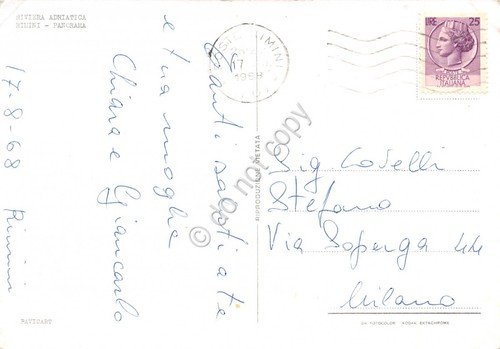 RIVIERA ADRIATICA
RIMINI - PANORAMA
17-8-68 Rimini
Tanti saluti a te
e tua moglie
Chiara e Giancarlo
RIMINI
17
1968
LIRE 25
POSTE
REPVBBLICA
ITALIANA
Sig Covelli
Stefano
Via Soperga 44
Milano
RIPRODUZIONE VIETATA
do not copy
RAVICART
DA FOTOCOLOR KODAK EKTACHROME